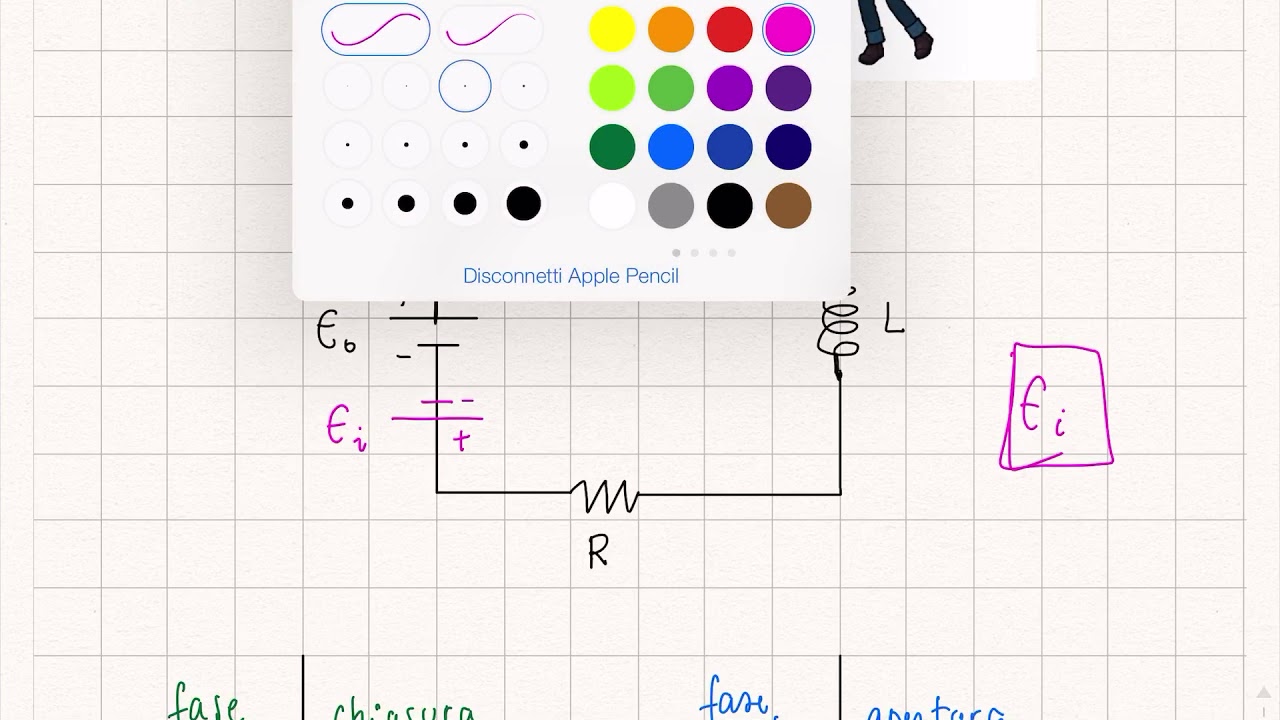 Disconnetti Apple Pencil
ε₀
-
L
-
εᵢ
+
εᵢ
R
fase chiusura
fase apertura